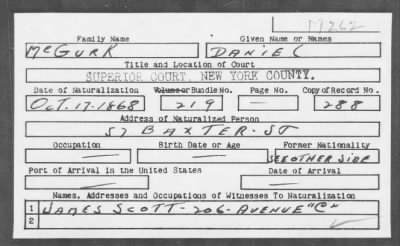 M262
Family Name Given Name or Names
McGURK DANIEL
Title and Location of Court
SUPERIOR COURT, NEW YORK COUNTY.
Date of Naturalization Volume or Bundle No. Page No. Copy of Record No.
OCT. 17-1868 219 — 288
Address of Naturalized Person
57 BAXTER-ST
Occupation Birth Date or Age Former Nationality
— — SEE OTHER SIDE
Port of Arrival in the United States Date of Arrival
— —
Names, Addresses and Occupations of Witnesses To Naturalization
1 JAMES SCOTT-206-AVENUE "C"
2